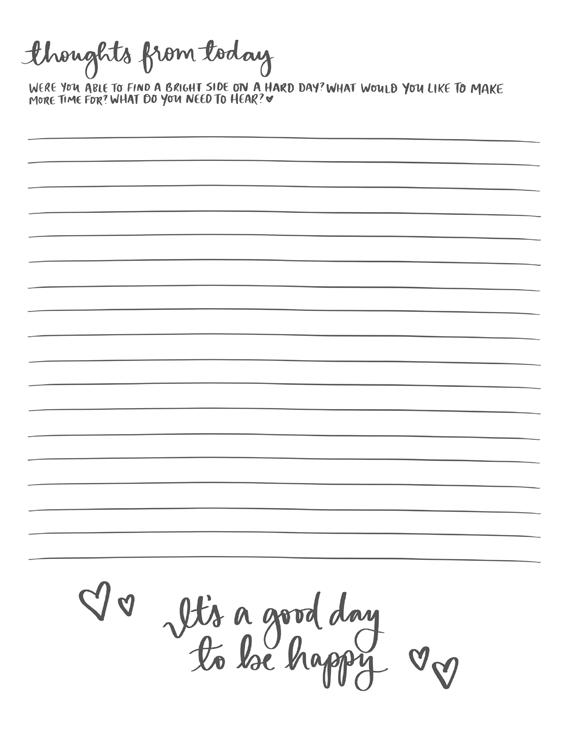 thoughts from today
WERE YOU ABLE TO FIND A BRIGHT SIDE ON A HARD DAY? WHAT WOULD YOU LIKE TO MAKE
MORE TIME FOR? WHAT DO YOU NEED TO HEAR? ♥
It's a good day
to be happy